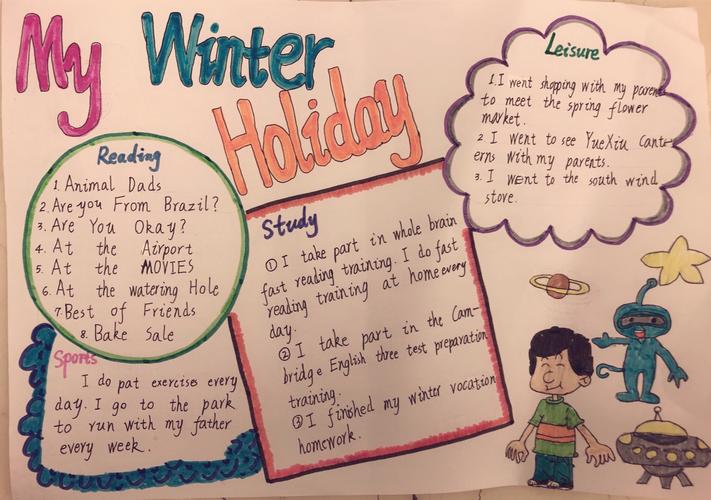 My Winter
Holiday
Reading
1. Animal Dads
2. Are you From Brazil?
3. Are You Okay?
4. At the Airport
5. At the MOVIES
6. At the watering Hole
7. Best of Friends
8. Bake Sale
Sports
I do pat exercises every
day. I go to the park
to run with my father
every week.
Study
① I take part in whole brain
fast reading training. I do fast
reading training at home every
day.
② I take part in the Cam-
bridge English three test preparation
training.
③ I finished my winter vocation
homework.
Leisure
1. I went shopping with my parents
to meet the spring flower
market.
2. I went to see YueXiu Cant-
erns with my parents.
3. I went to the south wind
stove.